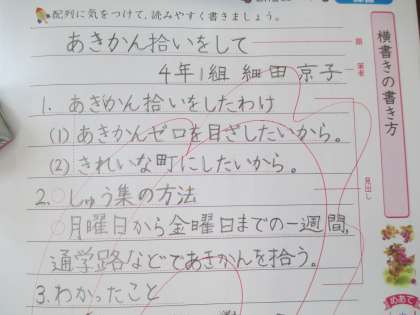 配列に気をつけて、読みやすく書きましょう。
横書きの書き方
あきかん拾いをして
題
4年1組 細田京子
筆者
1. あきかん拾いをしたわけ
(1) あきかんゼロを目ざしたいから。
(2) きれいな町にしたいから。
見出し
2. しゅう集の方法
○月曜日から金曜日までの一週間、
通学路などであきかんを拾う。
3. わかったこと
めあて